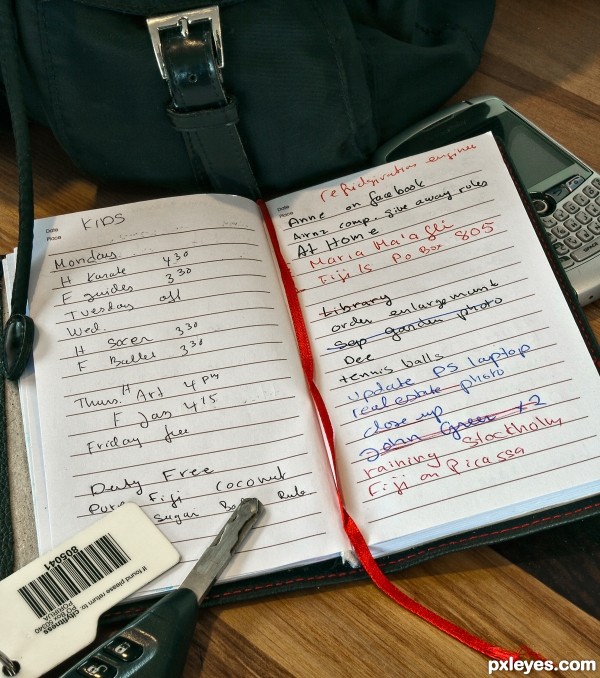 Date
Place
KIDS
Monday
H Karate 4 30
F guides 3 30
Tuesday off
Wed.
H Soccer 3 30
F Ballet 3 30
Thurs. H Art 4 pm
F Jas 4 15
Friday free
Duty Free
Pure Fiji coconut
Sugar Rule
Date
Place
refridgiration engineer
Anne on facebook
Airnz comp. give away rules
At Home
Maria Ma'afli
Fiji Is Po Box 805
Library
order enlargement
Sep garden photo
Dee
tennis balls
update PS laptop
real estate photo
close up
John Green x2
raining Stockholm
Fiji on Picassa
805041
If found please return to:
cityfitness
PO BOX 50340
PORIRUA
pxleyes.com